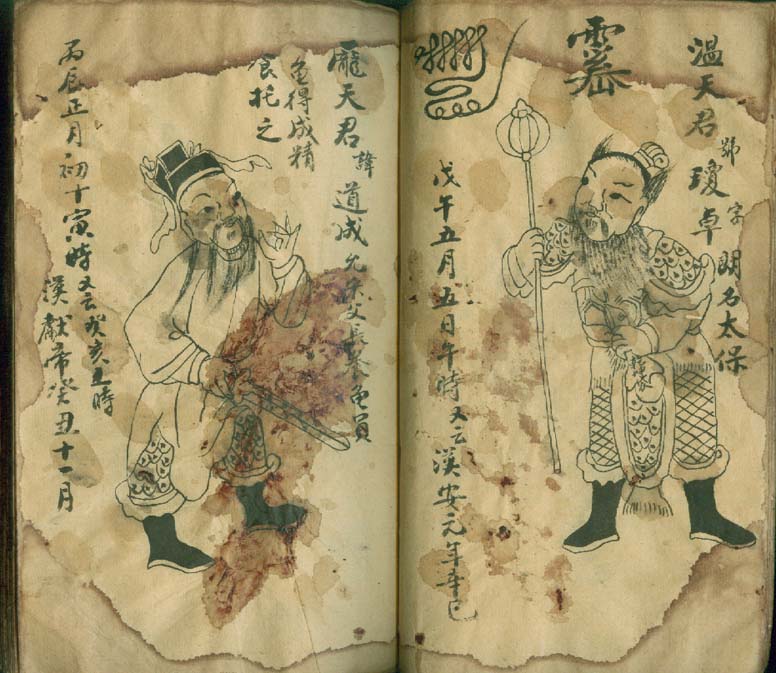 溫天君
號瓊字卓
朗名太保
戊午五月五日午時又云漢安元年辛巳
龐天君諱道成
魚得成精
食托之
丙辰正月初十寅時又云癸亥五時
漢獻帝癸丑十一月